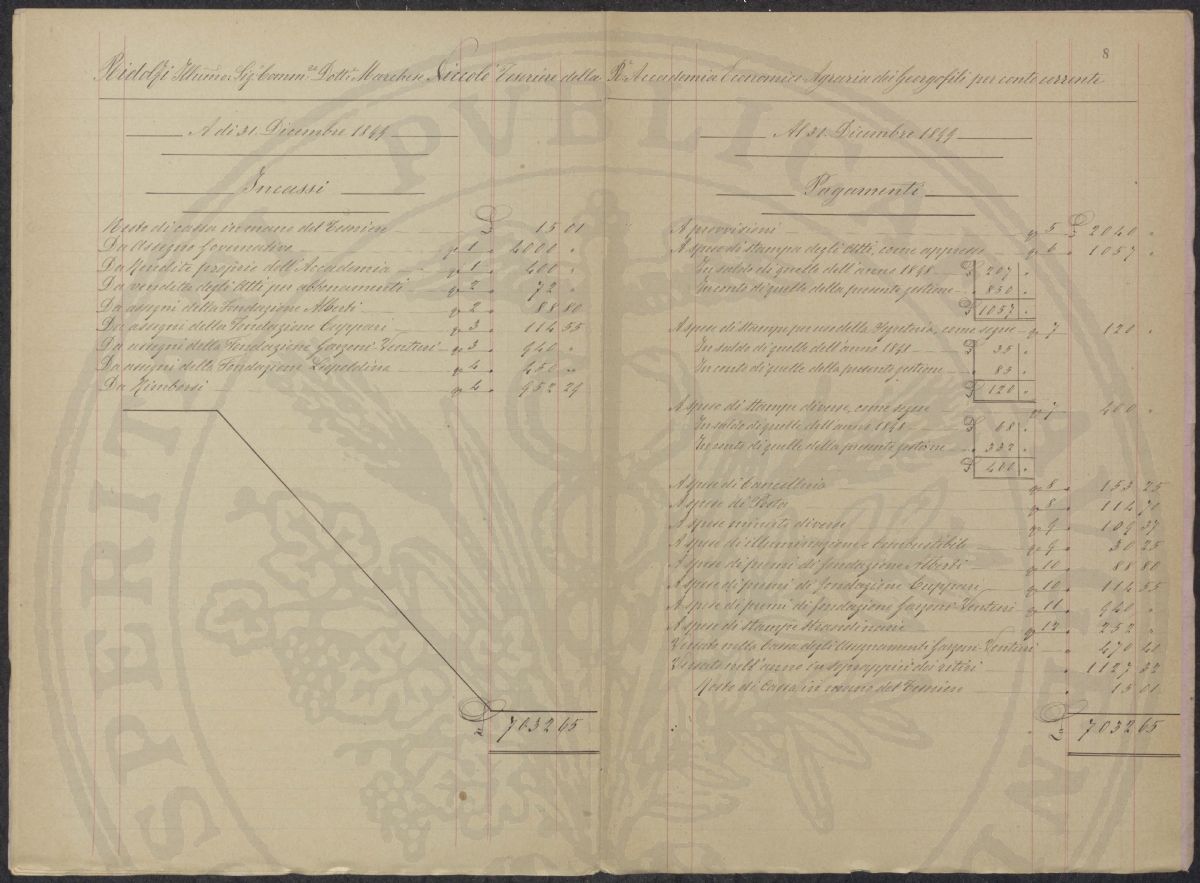 8
Ridolfi Illmo Sigr Comm.re Dottr. Marchese Niccolò Tesoriere della Ra. Accademia Economico Agraria dei Georgofili per conto corrente
A dì 31. Dicembre 1849
Incassi
Resto di cassa in mano del Tesoriere £ 15 01
Da Assegno Governativo 1 4000 "
Da Rendite proprie dell'Accademia 1 400 "
Da vendita degli Atti per abbonamenti 2 72 "
Da assegni della Fondazione Alberti 2 88 80
Da assegni della Fondazione Cuppari 3 114 55
Da assegni della Fondazione Garzoni-Venturi 3 940 "
Da assegni della Fondazione Leopoldina 4 450 "
Da Rimborsi 4 952 29
£ 7032 65
Al 31. Dicembre 1849
Pagamenti
A provvisioni 5 £ 2040 "
A spese di stampa degli Atti, come appresso 6 1057 "
In saldo di quelle dell'anno 1848 £ 207 "
In conto di quelle della presente gestione 850 "
£ 1057 "
A spese di stampe per uso della Segreteria, come segue 7 120 "
In saldo di quelle dell'anno 1848 £ 35 "
In conto di quelle della presente gestione 85 "
£ 120 "
A spese di stampe diverse, come segue 7 400 "
In saldo di quelle dell'anno 1848 £ 68 "
In conto di quelle della presente gestione 332 "
£ 400 "
A spese di Cancelleria 8 153 25
A spese di Posta 8 114 70
A spese minute diverse 9 109 37
A spese di illuminazione e Combustibile 9 30 25
A spese di premi di fondazione Alberti 10 88 80
A spese di premi di fondazione Cuppari 10 114 55
A spese di premi di fondazione Garzoni-Venturi 11 940 "
A spese di stampe straordinarie 12 252 "
Versato nella Cassa degli Assegnamenti Garzoni-Venturi 470 40
Versato nell'anno in soprappiù dei ritiri 1127 32
Resto di Cassa in mano del Tesoriere 15 01
£ 7032 65